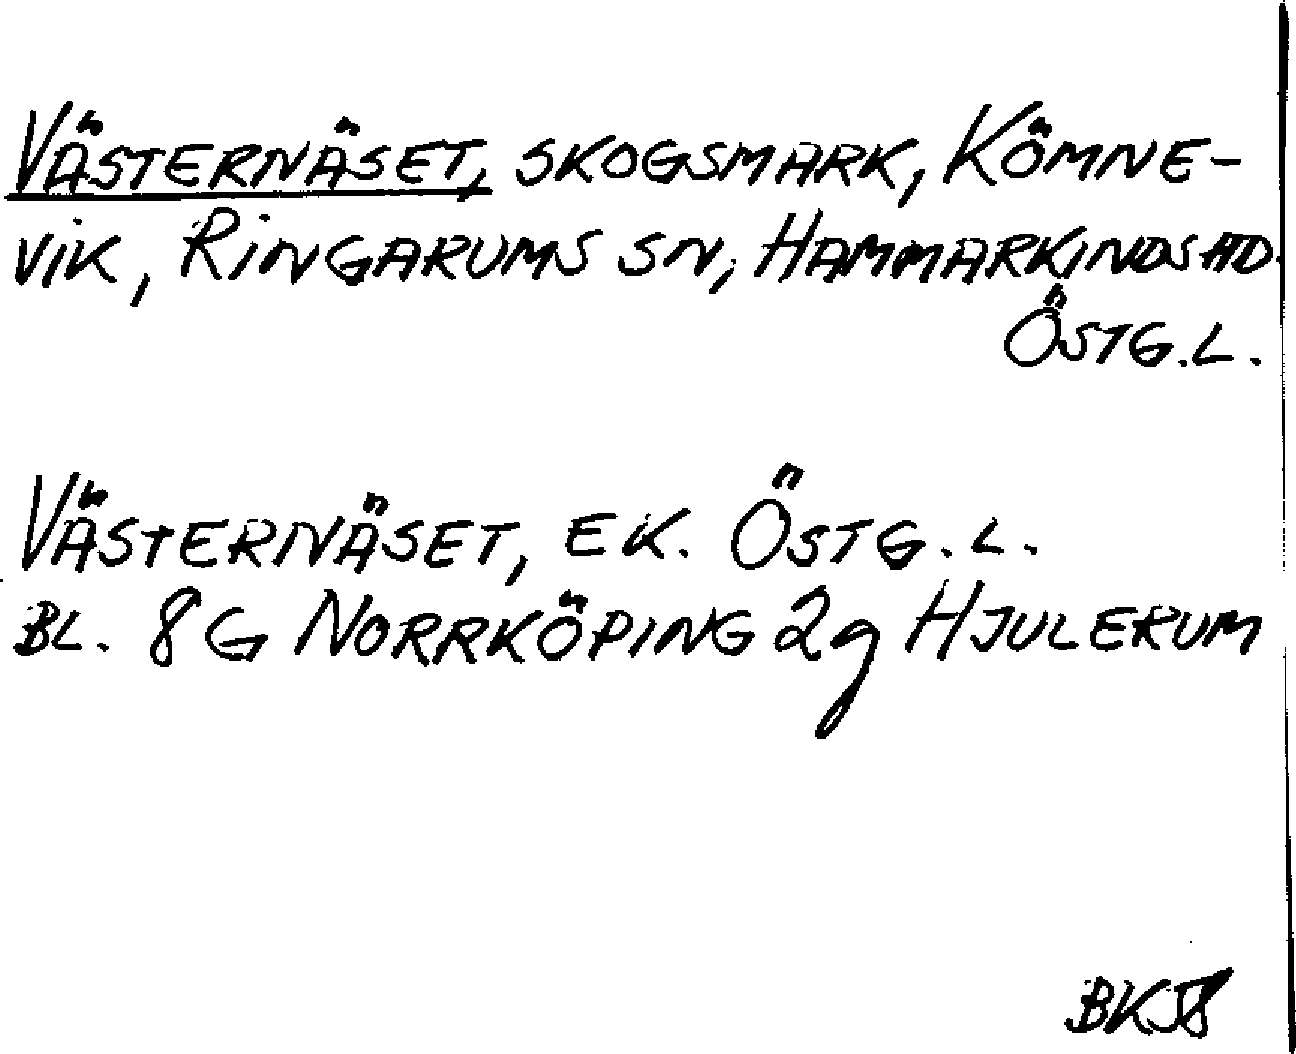 VÄSTERNÄSET, SKOGSMARK, KÖMNE-
VIK, RINGARUMS SN, HAMMARKINDS HD.
ÖSTG.L.
VÄSTERNÄSET, EK. ÖSTG.L.
BL. 8G NORRKÖPING 2g HJULERUM